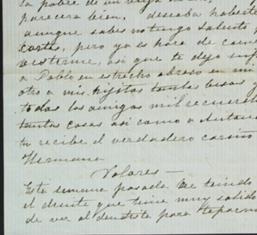 la pobre de mi
parecera bien, deseaba haberte
aunque sabes no tengo talento p
cartas, pero ya es hora de com
vestirme, asi que te dejo
a Pablo en estrecho abrazo en mi
otro a mis hijitos tantos besos y
todas las amigas mil recuerdos
tantas cosas asi como a Antonio
tu recibe el verdadero cariño
Hermana
Dolores —
Esta semana pasada he tenido
el diente que tiene muy salido
de ver al dentista para